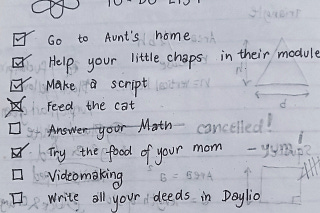 TO-DO LIST
Go to Aunt's home
Help your little chaps in their module
Make a script
Feed the cat
Answer your Math - cancelled!
Try the food of your mom - yum!
Videomaking
Write all your deeds in Daylio